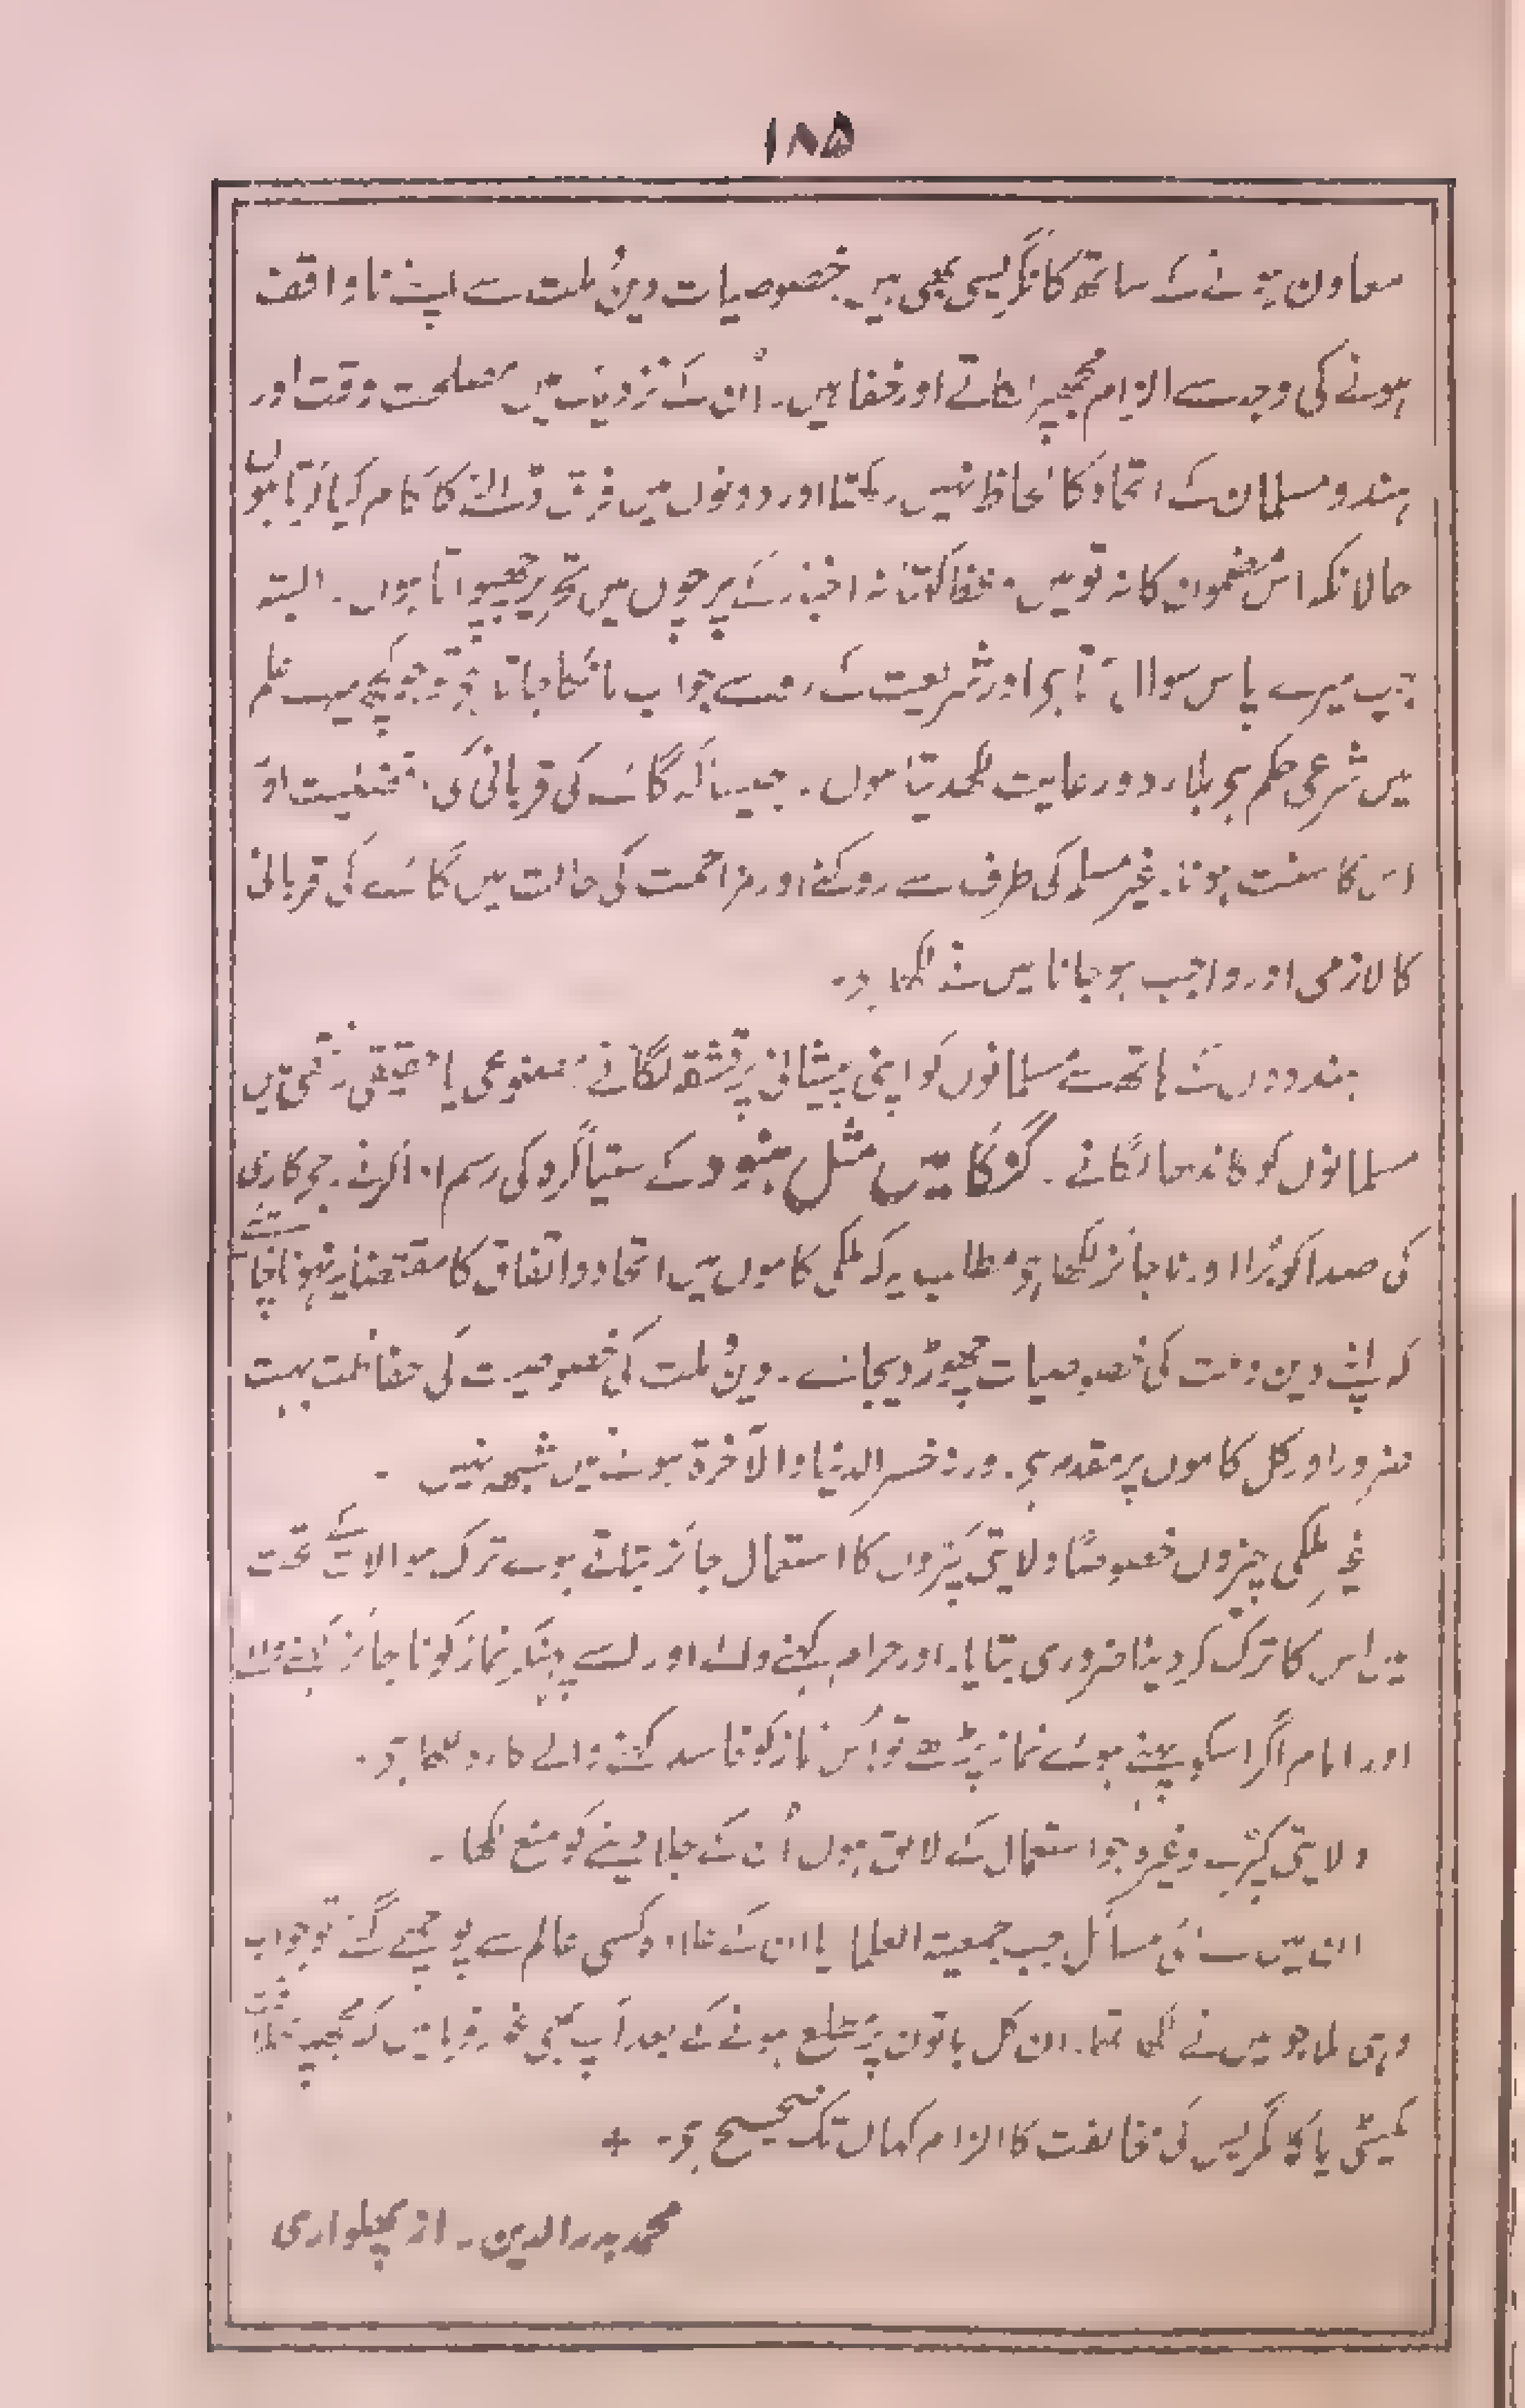 ۱۸۵
معاون ہونے کے ساتھ کانگریسی بھی ہیں۔ خصوصیات دین و ملت سے اپنے ناواقف
ہونے کی وجہ سے الزام مجھپر لگاتے اور خفا ہیں۔ اُن کے نزدیک میں مصلحت وقت اور
ہندو مسلمان کے اتحاد کا لحاظ نہیں رکھتا اور دونوں میں فرق ڈالنے کا کام کیا کرتا ہوں
حالانکہ اس مضمون کا نہ تو میں وعظ کہتا نہ اخبار کے پرچوں میں تحریر چھپواتا ہوں۔ البتہ
جب میرے پاس سوال آتا ہی اور شریعت کے رو سے جواب مانگا جاتا ہی تو جو کچھ میرے علم
میں شرعی حکم ہی بلا رو و رعایت لکھدیتا ہوں۔ جیسا کہ گائے کی قربانی کی افضلیت اور
اس کا سنت ہونا۔ غیر مسلم کی طرف سے روکنے اور مزاحمت کی حالت میں گائے کی قربانی
کا لازمی اور واجب ہو جانا میں نے لکھا ہی۔
ہندووں کے ہاتھ سے مسلمانوں کو اپنی پیشانی پر قشقہ لگانے مصنوعی یا حقیقی میں
مسلمانوں کو کاندھا لگانے۔ گنگا میں مثل ہنود کے ستیاگرہ کی رسم ادا کرنے۔ جی کاری
کی صدا کو بُرا اور ناجائز لکھا ہی مطلب یہ کہ ملکی کاموں میں اتحاد و اتفاق کا مقتضا یہ نہونا چاہئے
کہ اپنے دین و ملت کی خصوصیات چھوڑ دیجائے۔ دین و ملت کی خصوصیت کی حفاظت بہت
ضرور اور کل کاموں پر مقدم ہی۔ ورنہ خسر الدنیا والآخرۃ ہونے میں شبھہ نہیں۔
غیر ملکی چیزوں خصوصًا ولایتی کپڑوں کا استعمال جائز بتاتے ہوے ترک موالات کے تحت
میں اس کا ترک کر دینا ضروری بتایا۔ اور حرام کہنے والے اور اسے پہنکر نماز کو ناجائز کہنے والے
اور امام اگر اسکو پہنے ہوئے نماز پڑھے تو اُس نماز کو فاسد کہنے والے کا رد لکھا ہی۔
ولایتی کپڑے وغیرہ جو استعمال کے لائق ہوں اُن کے جلا دینے کو منع لکھا۔
ان میں سے کئی مسائل جب جمعیۃ العلما یا ان کے علاوہ کسی عالم سے پوچھے گئے تو جواب
وہی ملا جو میں نے لکھا تھا۔ ان کل باتوں پر مطلع ہونے کے بعد آپ بھی غور فرمائیں کہ مجھپر خلافت
کمیٹی یا کانگریس کی مخالفت کا الزام کہاں تک صحیح ہی۔ +
محمد بدرالدین۔ از پھلواری